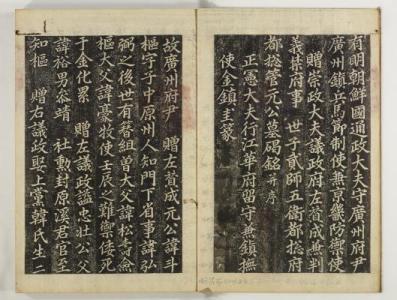 有明朝鮮國通政大夫守廣州府尹
廣州鎮兵馬節制使兼京畿防禦使
贈崇政大夫議政府左贊成兼判
義禁府事 世子貳師五衛都摠府
都摠管元公墓碣銘 并序
正憲大夫行江華府留守兼鎮撫
使金鎮圭篆
故廣州府尹 贈左贊成元公諱斗
樞字子中原州人知門下省事諱弘
弼之後世有簪組曾大父諱松壽僉
樞大父諱豪牧使壬辰之難禦倭死
于金化累 贈左議政謚忠壯公父
諱裕男參靖 社勳封原溪君官至
知樞 贈右議政娶上黨韓氏生二